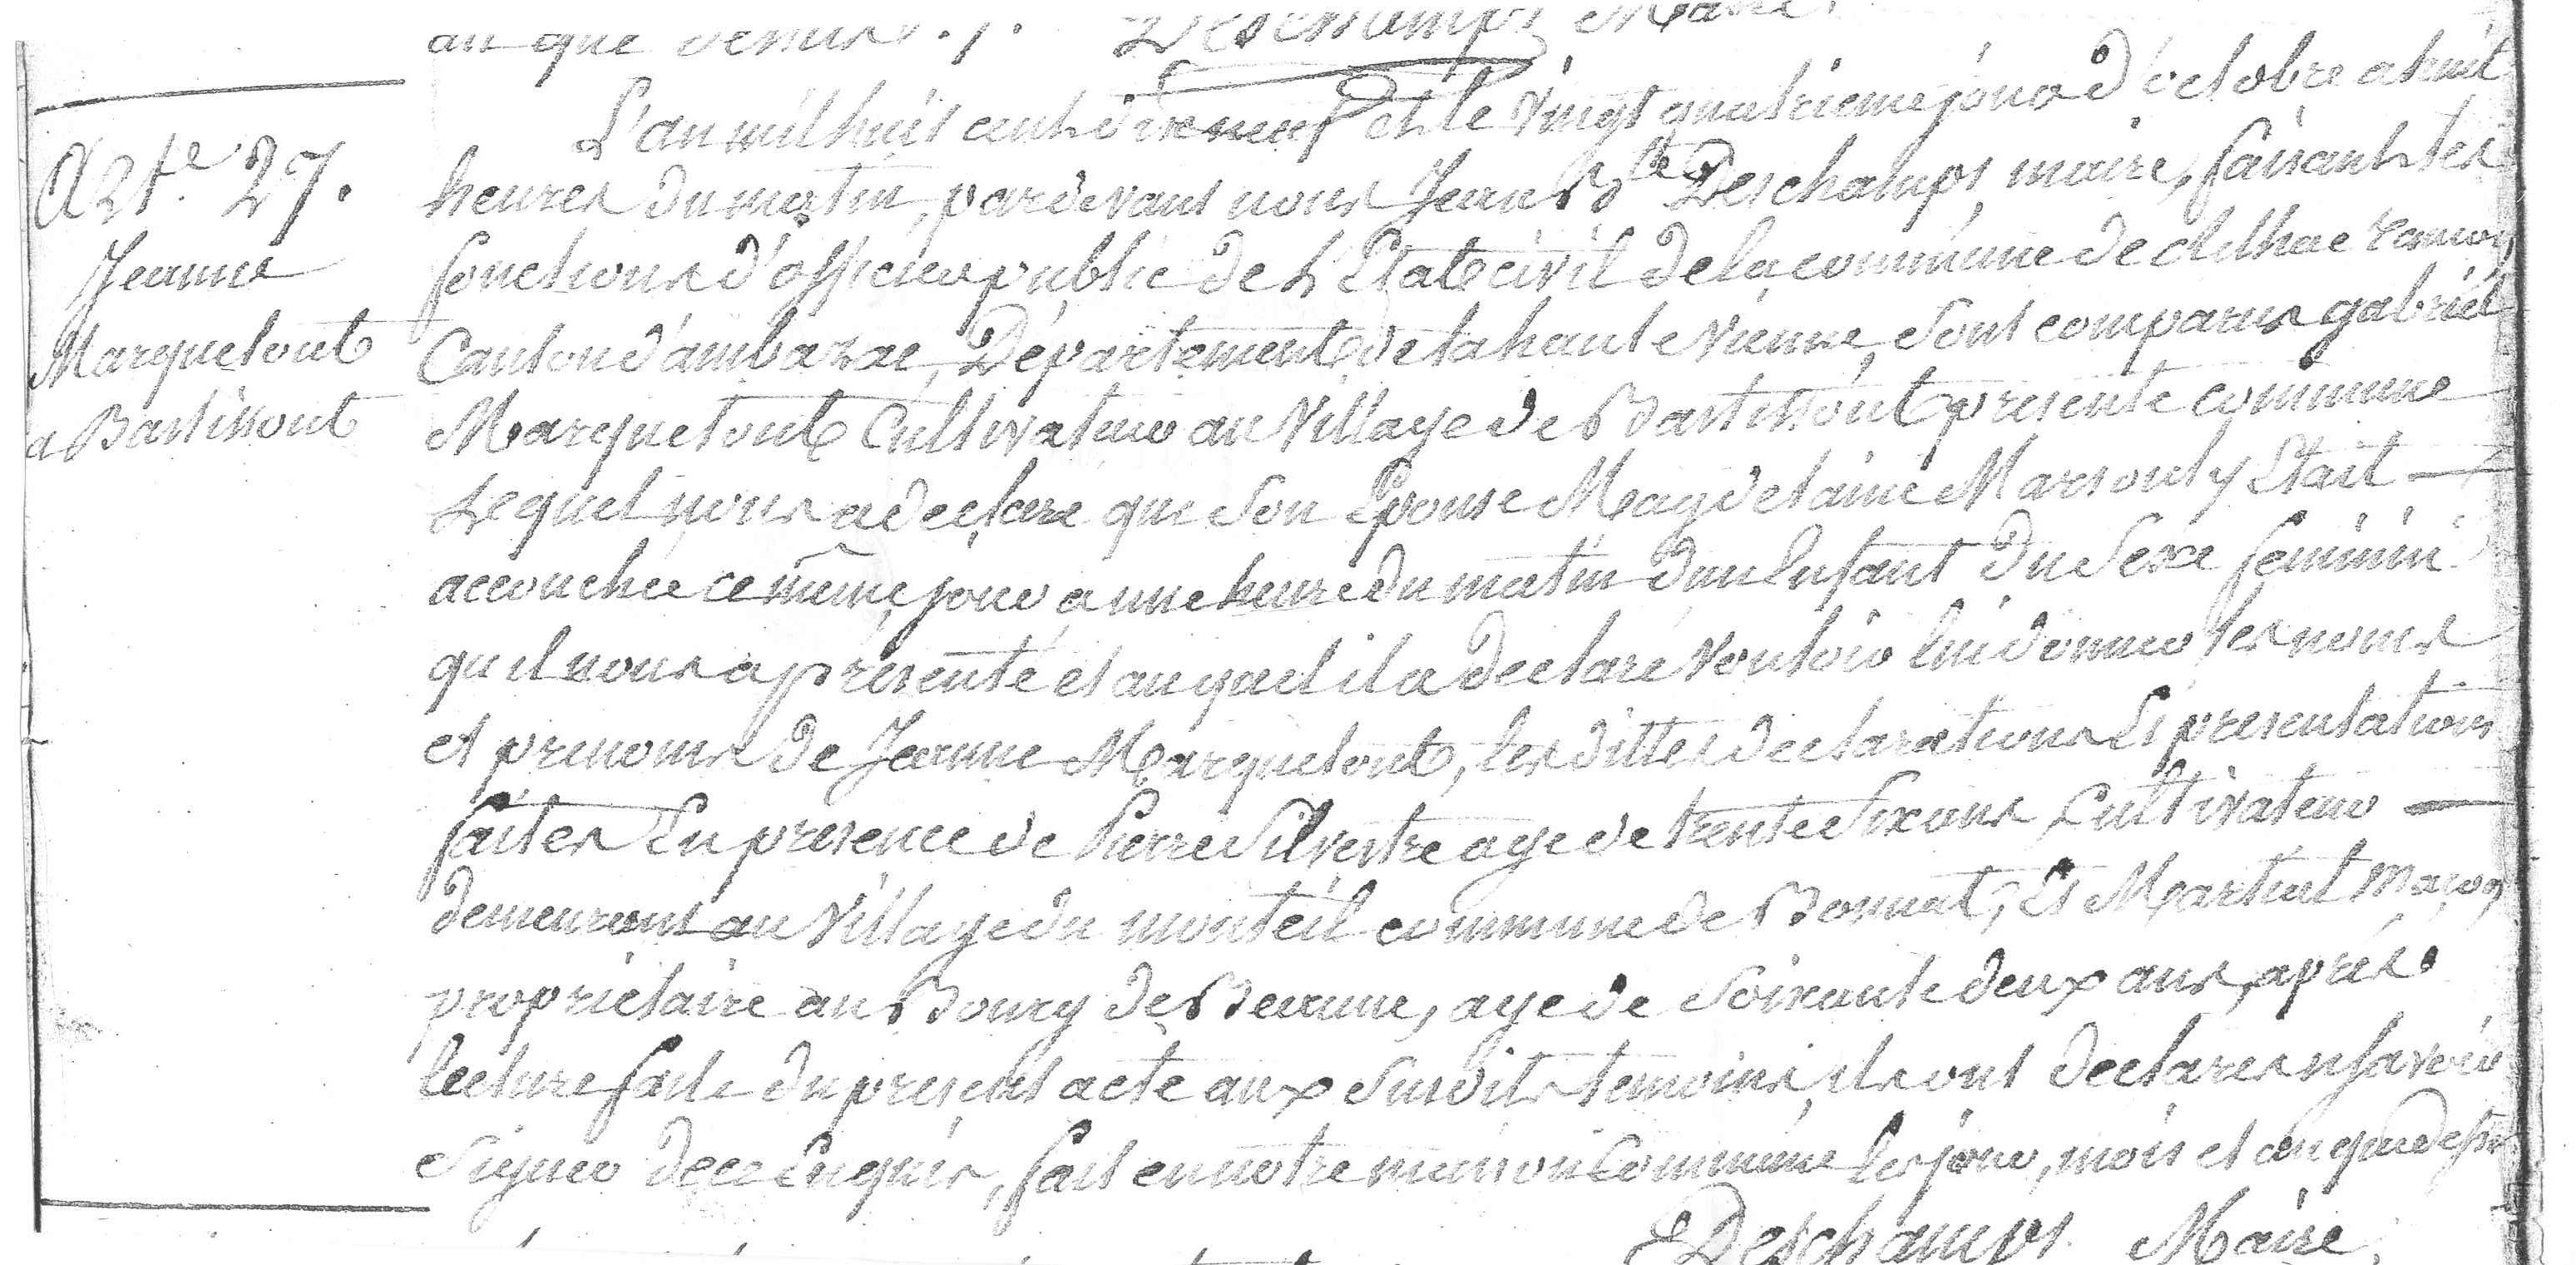 an que dessus ./. Deschamps Maire.
L'an mil huit cent dixneuf et le vingt quatrieme jour d'octobre a huit
Art.e 27.
heures du matin, pardevant nous Jean Bte Deschamps, maire, faisant les
Jeanne
fonctions d'officier public de L'Etat civil de la commune de
Marquetout
Canton d'ambazac, Département de la haute Vienne, sont comparus gabriel
a Bastissout
Marquetout Cultivateur au Village de Bastissout presente commune
Lequel nous a declare que son Epouse Magdelaine Marsouly Etait —
accouchee ce même jour a une heure du matin d'un Enfant du sexe feminin
qu'il nous a présenté et auquel il a declaré vouloir lui donner les noms
et prenoms de Jeanne Marquetout, les dittes declarations Et presentations
faites En presence de Pierre Silvestre age de trente six ans Cultivateur —
demeurant au Village du monteil commune de Bonnat, Et Martial maçon,
propriétaire au Bourg de Beaune, age de soixante deux ans, après
lecture faite du present acte aux susdits temoins, ils ont declares n savoir
signer de ce Enquis, fait en notre maison Commune les jour, mois et an que dessus
Deschamps Maire.